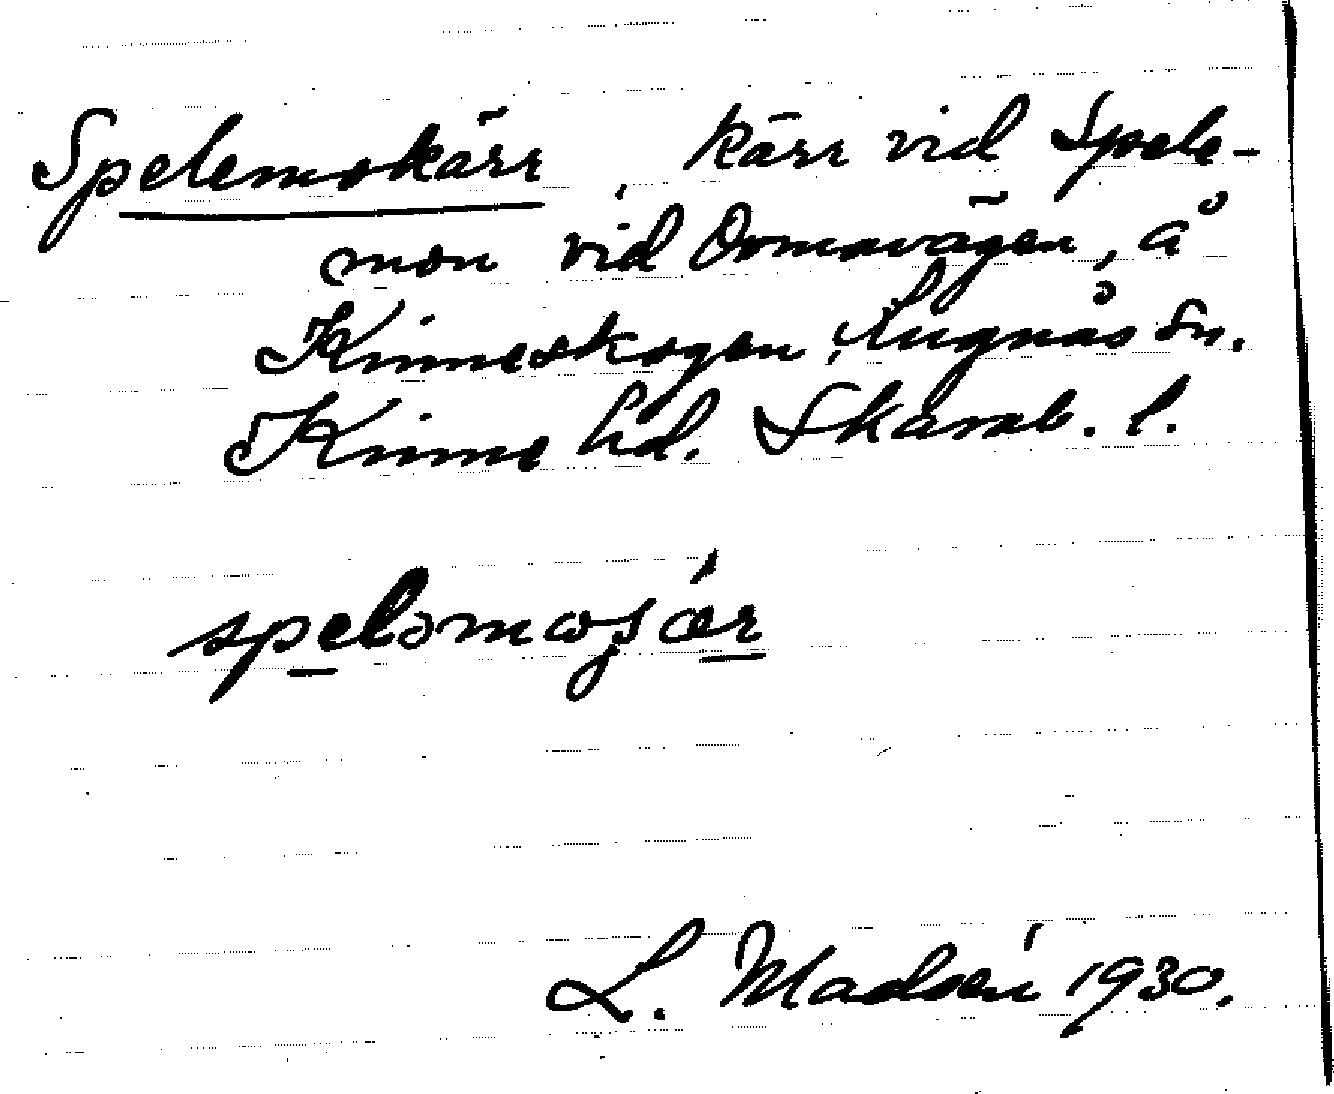 Spelemokärr, kärr vid Spele-
mon vid Domavägen, å
Kinneskogen, Lugnås sn.
Kinne hd. Skarab. l.
speləmoʃær
L. Madsén 1930.